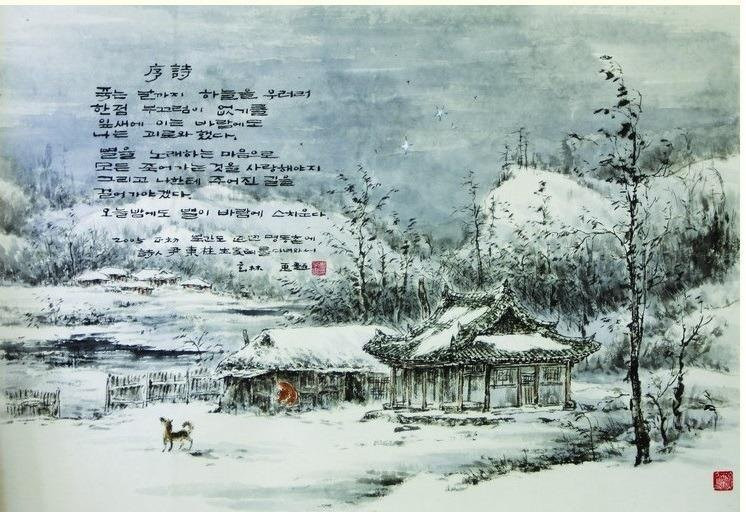 序詩
죽는 날까지 하늘을 우러러
한점 부끄럼이 없기를
잎새에 이는 바람에도
나는 괴로와 했다.
별을 노래하는 마음으로
모든 죽어가는 것을 사랑해야지
그리고 나한테 주어진 길을
걸어가야겠다.
오늘밤에도 별이 바람에 스치운다
2005 북간도 명동촌에
詩人 尹東柱 生家를 다녀와서